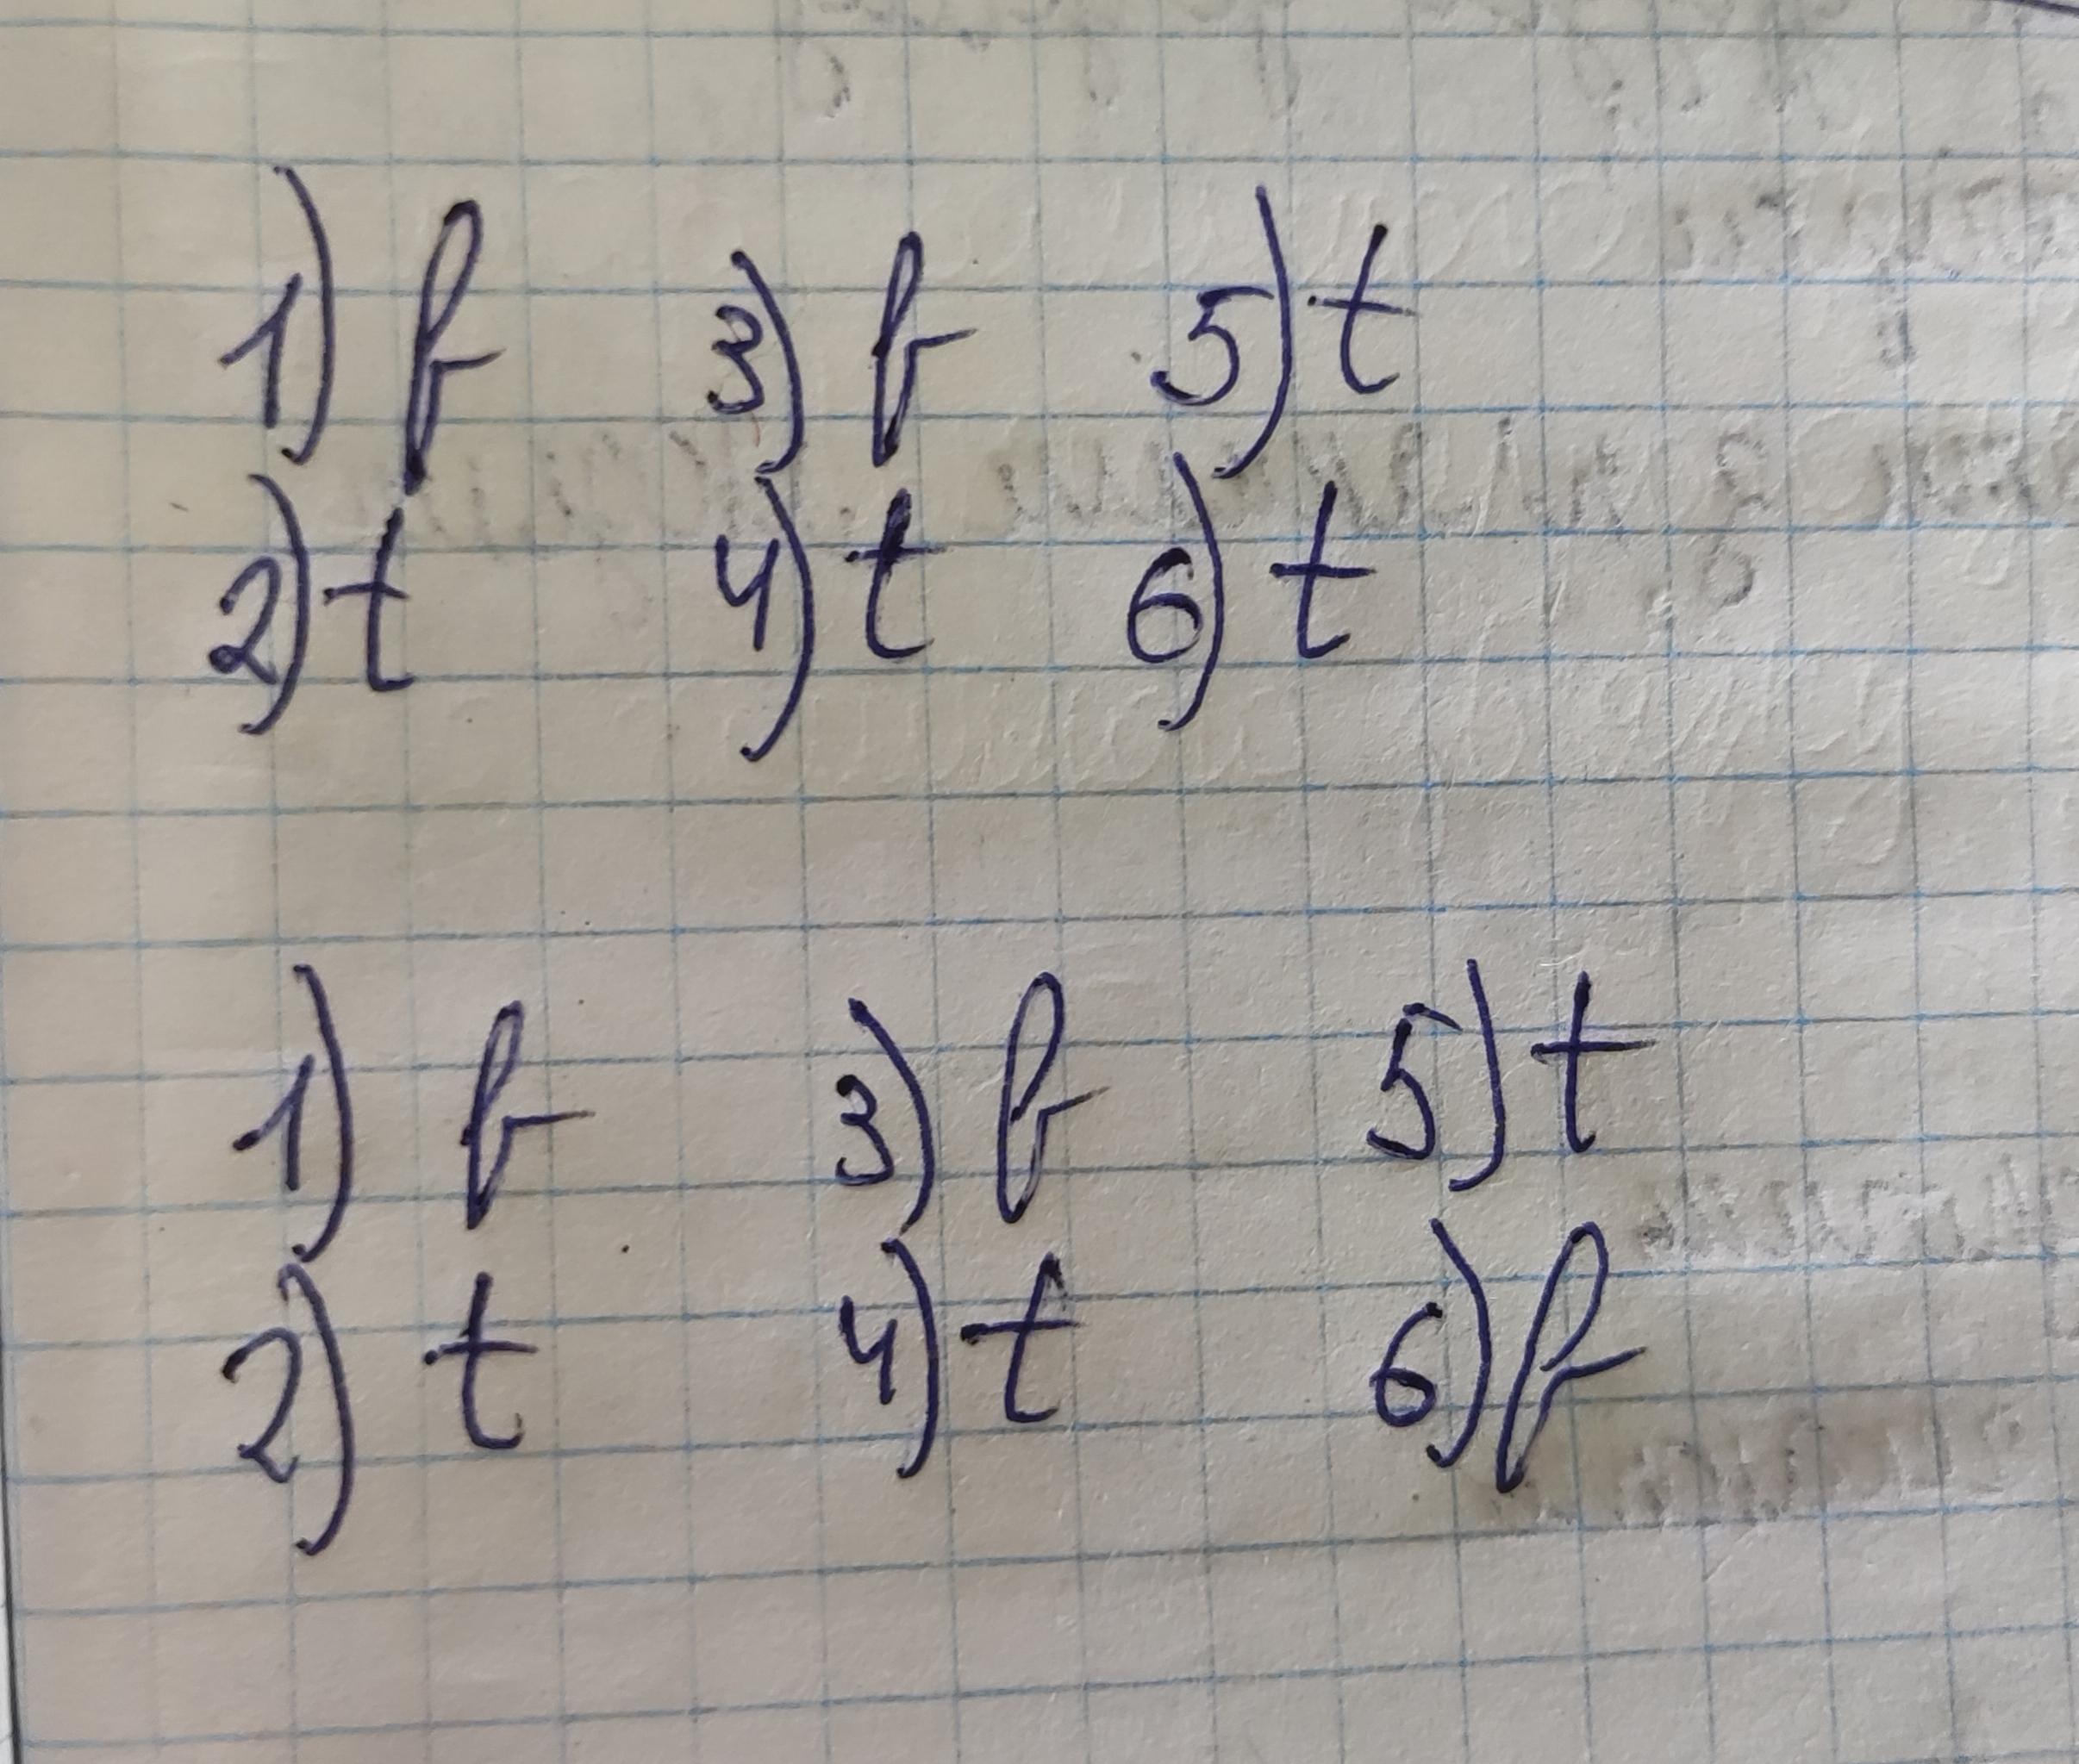 1) f 3) f 5) t
2) t 4) t 6) t
1) f 3) f 5) t
2) t 4) t 6) f